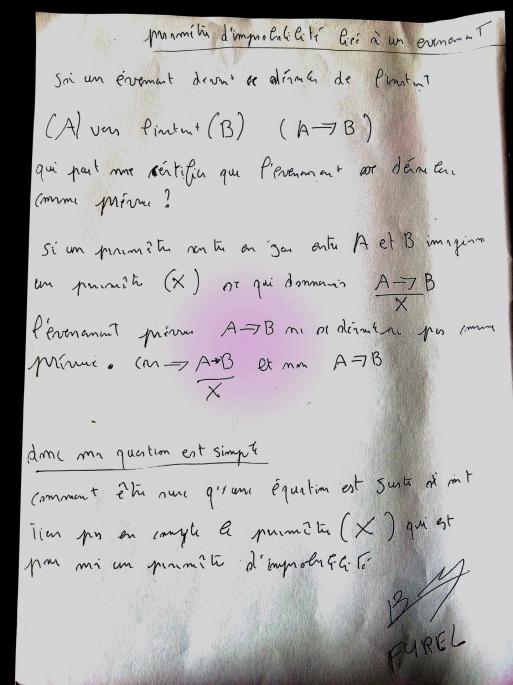 paramètre d'improbabilité lié à un evenement
Soi un évement devant se dérouler de l'instant
(A) vers l'instant (B) (A → B)
qui peut me certifier que l'évenement se déroulera
comme prévue ?
Si un paramètre rentre en jeu entre A et B imaginons
un paramètre (X) ce qui donnerais A → B
X
l'évenement prévue A → B ne se déroulera pas comme
prévue. car → A → B et non A → B
X
donc ma question est simple
comment être sure qu'une équation est juste si on
tien pas en compte le paramètre (X) qui est
pour moi un paramètre d'improbabilité
FUREL